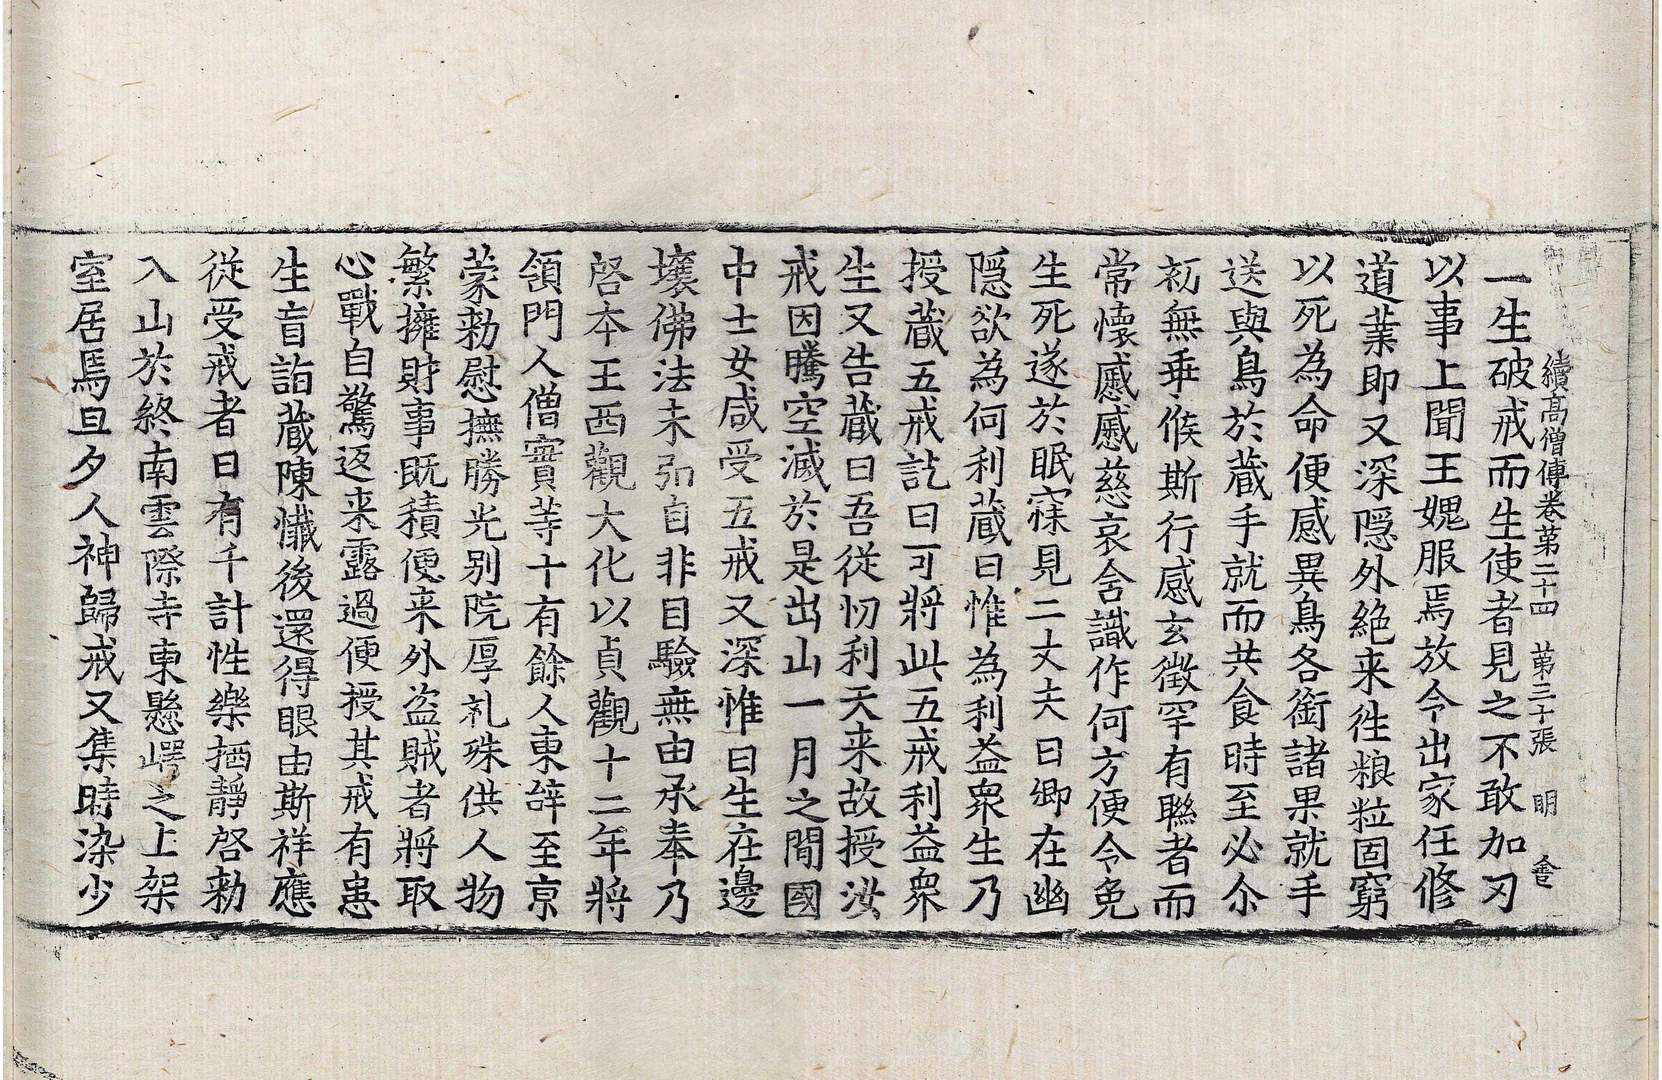 續高僧傳卷苐二十四　苐三十張　明　𠫭
一生破戒而生使者見之不敢加刃
以事上聞王媿服焉放令出家任修
道業即又深隱外絶来往粮粒固窮
以死為命便感異鳥各銜諸果就手
送與鳥於蔵手就而共食時至必尒
初無乖候斯行感玄徵罕有聮者而
常懷慼慼慈哀含識作何方便令免
生死遂於眠寐見二丈夫曰卿在幽
隱欲為何利蔵曰惟為利益衆生乃
授蔵五戒訖曰可將此五戒利益衆
生又告蔵曰吾從忉利天来故授汝
戒因騰空滅於是出山一月之閒國
中士女咸受五戒又深惟曰生在邊
壤佛法未弘自非目驗無由承奉乃
啓本王西觀大化以貞觀十二年將
領門人僧實等十有餘人東辝至京
蒙勑慰撫勝光別院厚礼殊供人物
繁擁財事既積便来外盗賊者將取
心戰自驚返来露過便授其戒有患
生盲詣蔵陳懺後還得眼由斯祥應
從受戒者日有千計性樂栖靜啓勑
入山於終南雲際寺東懸崿之上架
室居焉旦夕人神歸戒又集時染少